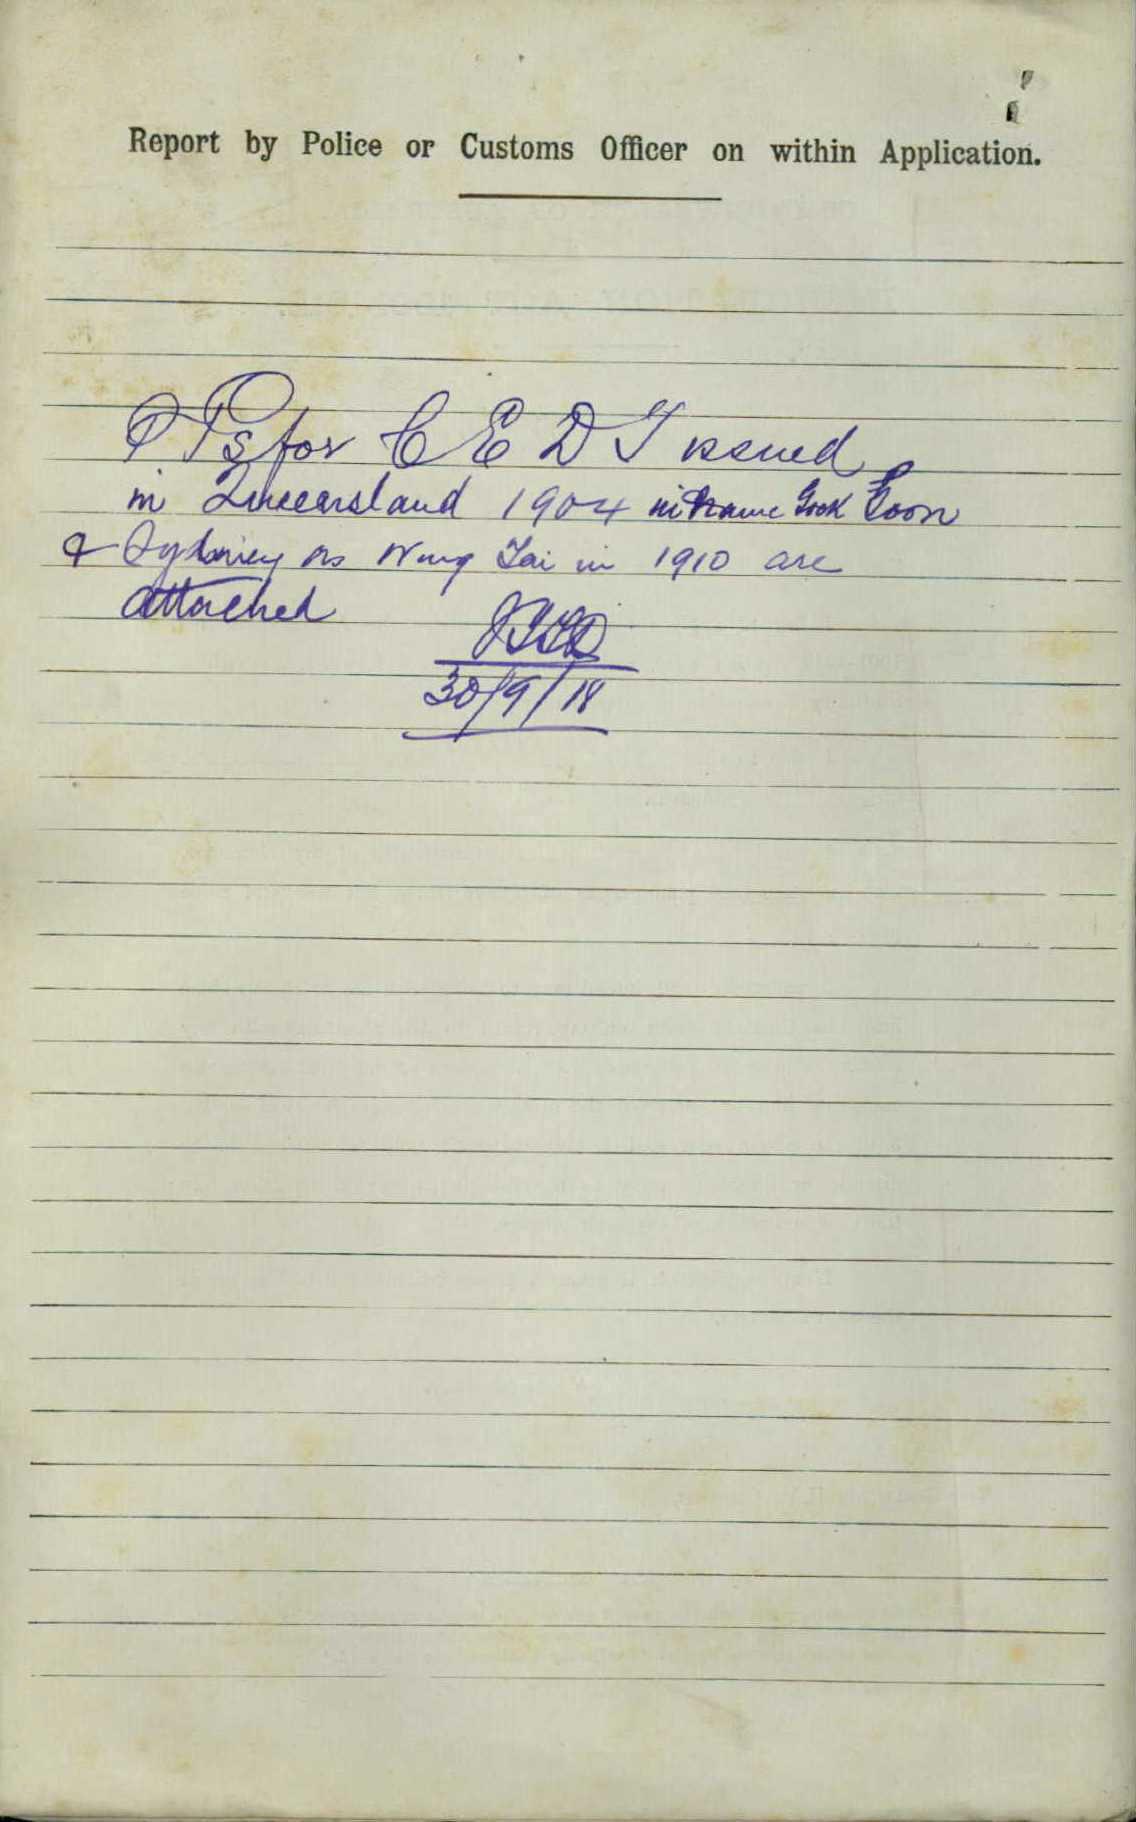 Report by Police or Customs Officer on within Application.
P Ps for C E D T issued
in Queensland 1904 in name Gook Goon
& Sydney as Wong Tai in 1910 are
attached
30/9/18